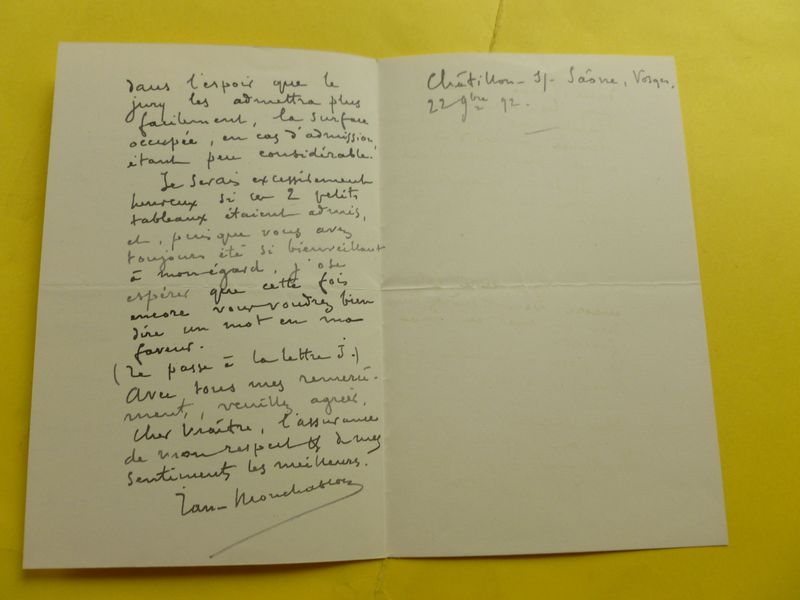 dans l'espoir que le
jury les admettra plus
facilement, la surface
occupée, en cas d'admission,
étant peu considérable.
Je serais excessivement
heureux si ces 2 petits
tableaux étaient admis,
et, puisque vous avez
toujours été si bienveillant
à mon égard, j'ose
espérer que cette fois
encore vous voudrez bien
dire un mot en ma
faveur.
(Je passe à la lettre J.)
Avec tous mes remercie-
ments, veuillez agréer,
Cher Maître, l'assurance
de mon respect & de mes
sentiments les meilleurs.
Jan-Monchablon
Châtillon-s/-Saône, Vosges,
22 9bre 92.